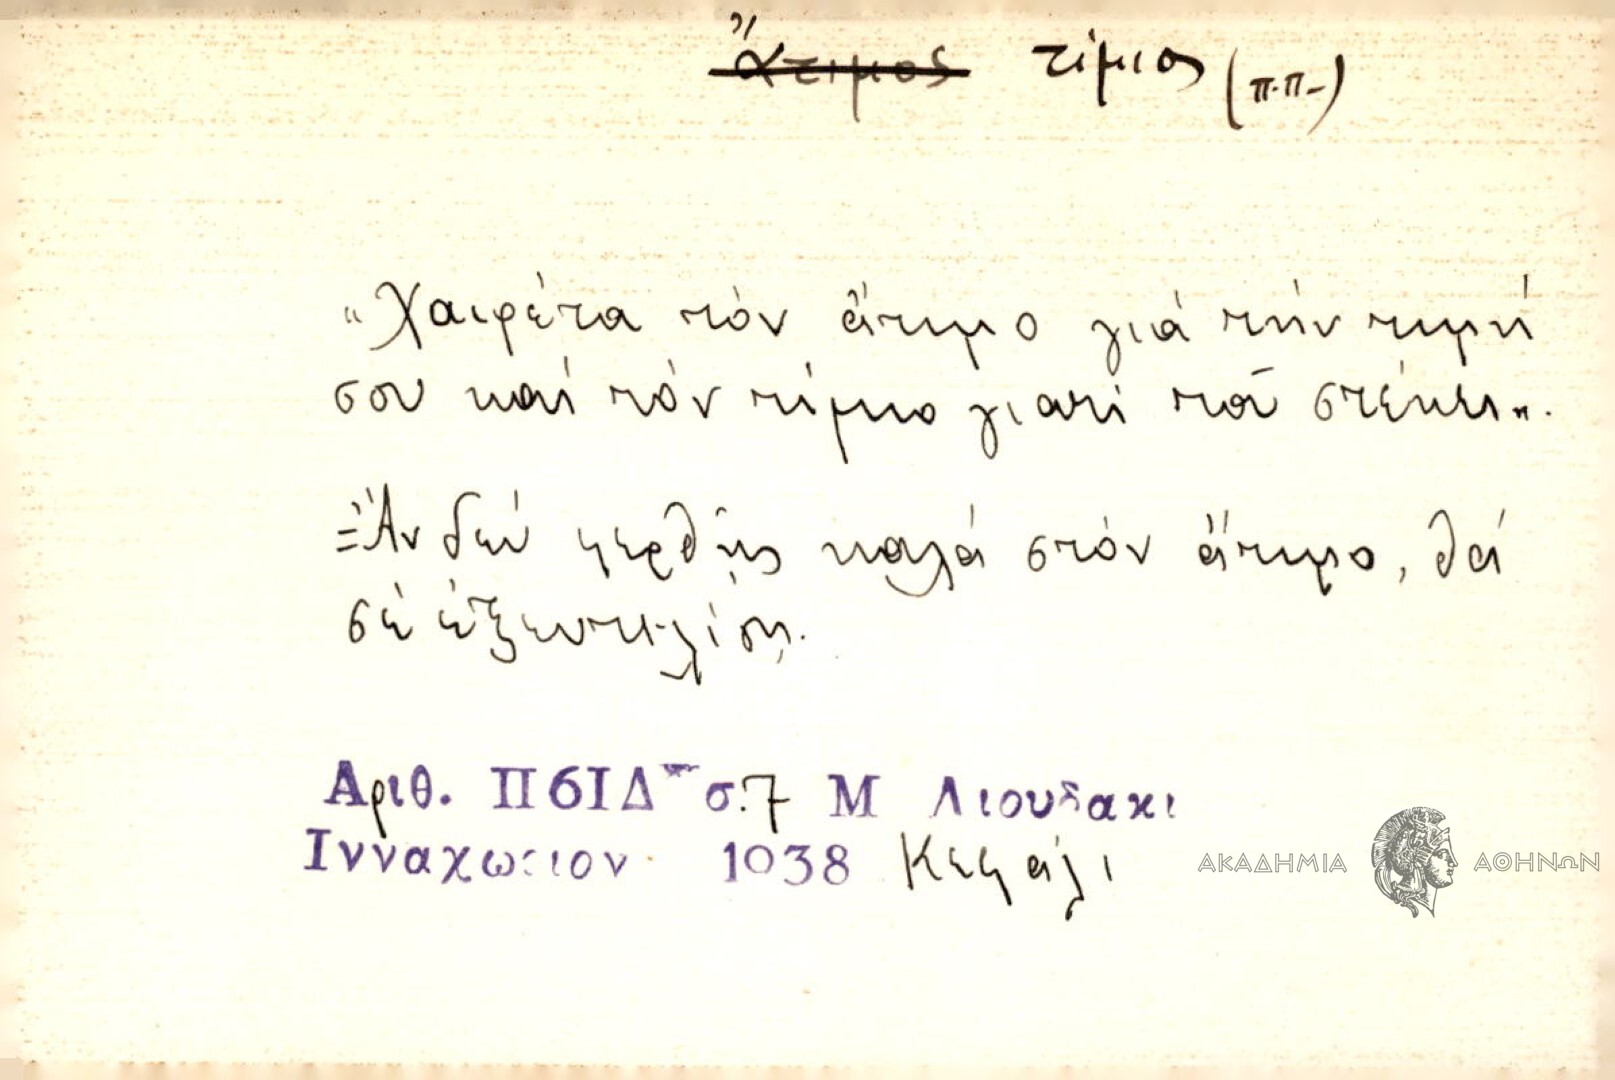 Ἄτιμος τίμιος (π.π.)
"Χαιρέτα τόν ἄτιμο γιά τήν τιμή
σου καί τόν τίμιο γιατί τοῦ στέκει".
=Ἄν δέν φερθῇς καλά στόν ἄτιμο, θά
σέ ἐξευτελίσῃ.
Αριθ. Π6ΙΔ σ.7 Μ Λιουδακι
Ινναχωριον 1938 Κεφάλι
ΑΚΑΔΗΜΙΑ ΑΘΗΝΩΝ